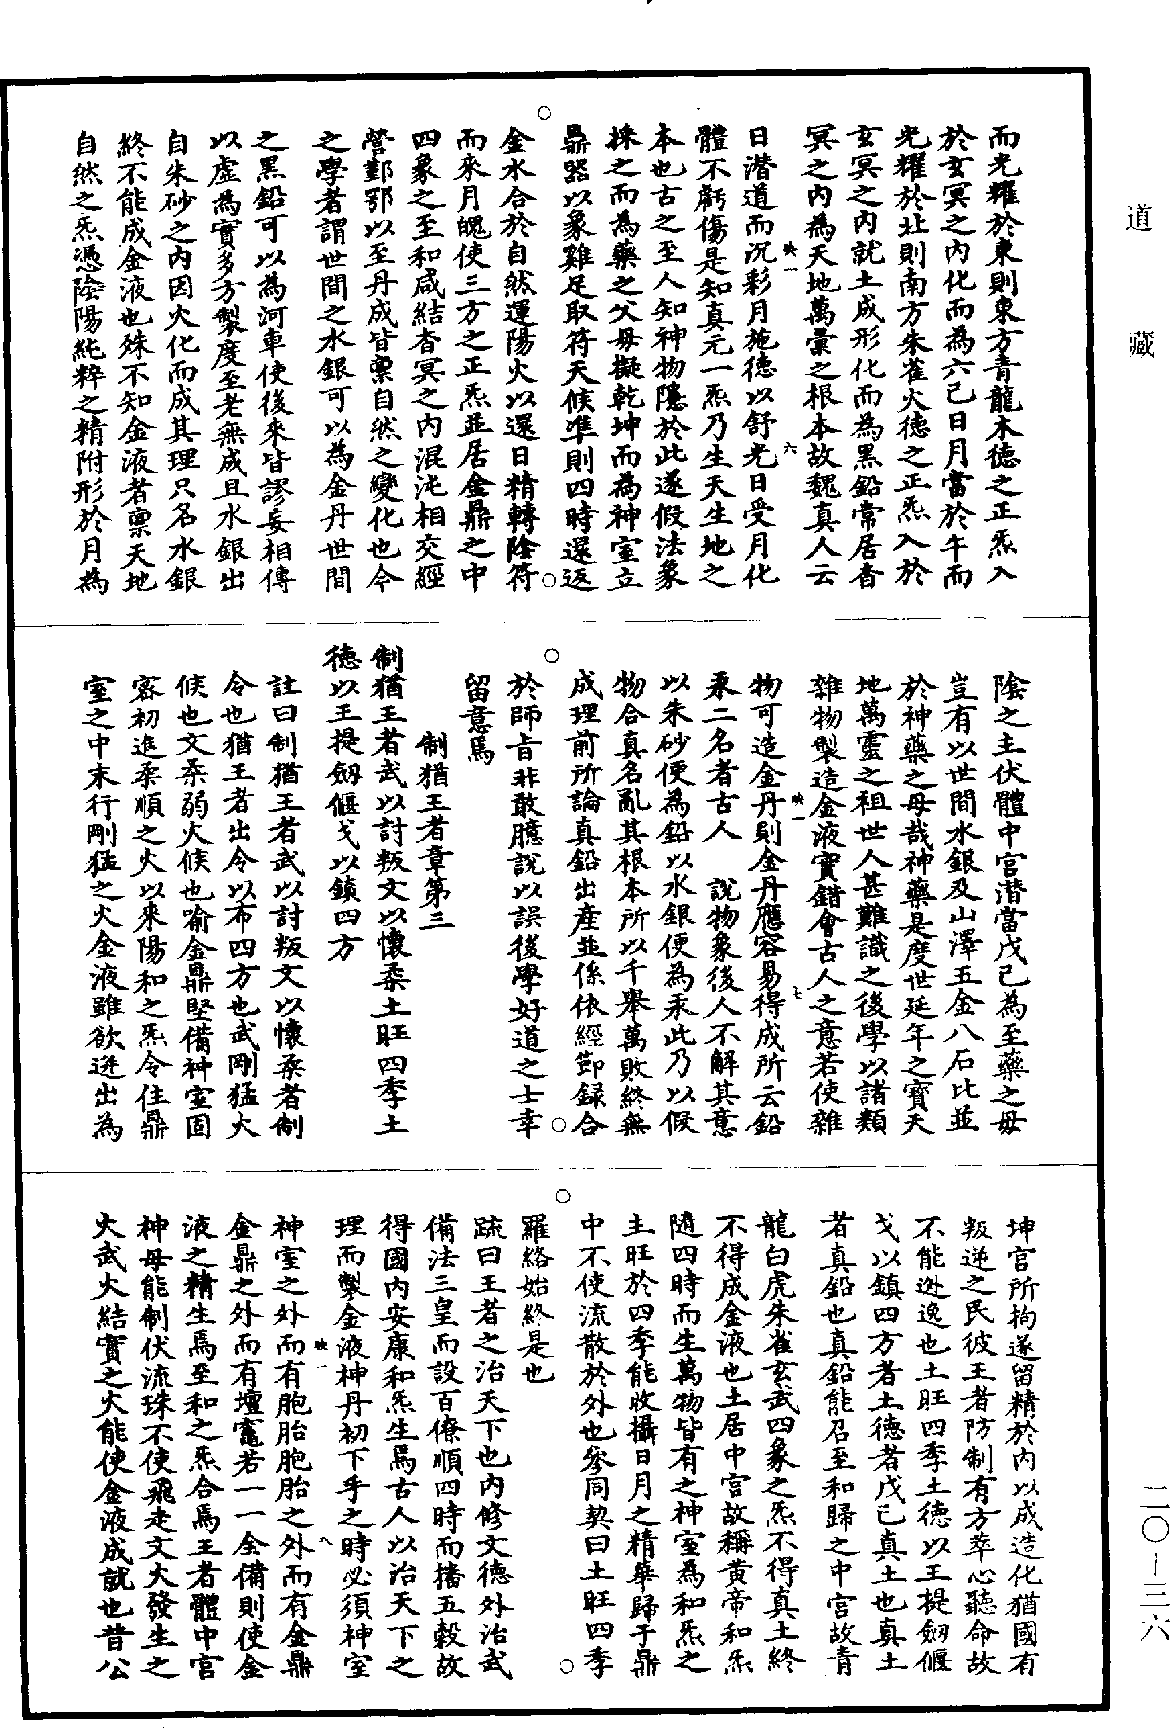 道藏
而光耀於東則東方青龍木德之正炁入
於玄冥之內化而為六己日月當於午而
光耀於北則南方朱雀火德之正炁入於
玄冥之內就土成形化而為黑鉛常居杳
冥之內為天地萬彙之根本故魏真人云
映一
六
日潛道而沉彩月施德以舒光日受月化
體不虧傷是知真元一炁乃生天生地之
本也古之至人知神物隱於此遂假法象
採之而為藥之父母擬乾坤而為神室立
鼎器以象雞足取符天候準則四時還返
金水合於自然運陽火以還日精轉陰符
而來月魄使三方之正炁並居金鼎之中
四象之至和咸結杳冥之內混沌相交經
營鄞鄂以至丹成皆稟自然之變化也今
之學者謂世間之水銀可以為金丹世間
之黑鉛可以為河車使後來皆謬妄相傳
以虛為實多方製度至老無成且水銀出
自朱砂之內因火化而成其理只名水銀
終不能成金液也殊不知金液者稟天地
自然之炁憑陰陽純粹之精附形於月為
陰之主伏體中宮潛當戊己為至藥之母
豈有以世間水銀及山澤五金八石比並
於神藥之母哉神藥是度世延年之寶天
地萬靈之祖世人甚難識之後學以諸類
雜物製造金液寶錯會古人之意若使雜
映一
七
物可造金丹則金丹應容易得成所云鉛
汞二名者古人 說物象後人不解其意
以朱砂便為鉛以水銀便為汞此乃以假
物合真名亂其根本所以千舉萬敗終無
成理前所論真鉛出產並係依經節錄合
於師旨非敢臆說以誤後學好道之士幸
留意焉
制猶王者章第三
制猶王者武以討叛文以懷柔土旺四季土
德以王提劔偃戈以鎮四方
註曰制猶王者武以討叛文以懷柔者制
令也猶王者出令以布四方也武剛猛火
候也文柔弱火候也喻金鼎堅備神室固
密初進柔順之火以來陽和之炁令住鼎
室之中末行剛猛之火金液雖欲迸出為
坤宮所拘遂留精於內以成造化猶國有
叛逆之民彼王者防制有方萃心聽命故
不能逃逸也土旺四季土德以王提劔偃
戈以鎮四方者土德者戊己真土也真土
者真鉛也真鉛能召至和歸之中宮故青
龍白虎朱雀玄武四象之炁不得真土終
不得成金液也土居中宮故稱黃帝和炁
隨四時而生萬物皆有之神室為和炁之
主旺於四季能收攝日月之精華歸于鼎
中不使流散於外也參同契曰土旺四季
羅絡始終是也
疏曰王者之治天下也內修文德外治武
備法三皇而設百僚順四時而播五穀故
得國內安康和炁生焉古人以治天下之
理而製金液神丹初下手之時必須神室
映一
八
神室之外而有胞胎胞胎之外而有金鼎
金鼎之外而有壇竈若一一全備則使金
液之精生焉至和之炁合焉王者體中宮
神母能制伏流珠不使飛走文火發生之
火武火結實之火能使金液成就也昔公
二〇—三六